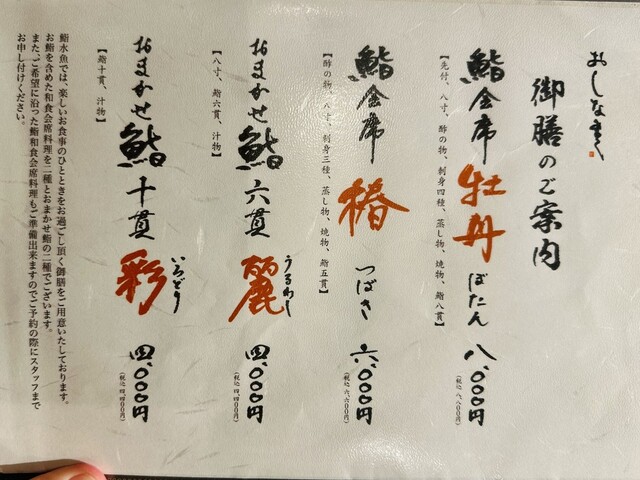 おしながき
御膳のご案内
鮨会席 牡丹 ぼたん 八、000円
(税込 八、八00円)
【先付、八寸、酢の物、刺身四種、蒸し物、焼物、鮨八貫】
鮨会席 椿 つばき 六、000円
(税込 六、六00円)
【酢の物、八寸、刺身三種、蒸し物、焼物、鮨五貫】
おまかせ鮨六貫 麗 うるわし 四、000円
(税込 四、四00円)
【八寸、鮨六貫、汁物】
おまかせ鮨十貫 彩 いろどり 四、000円
(税込 四、四00円)
【鮨十貫、汁物】
鮨水魚では、楽しいお食事のひとときをお過ごし頂く御膳をご用意いたしております。
お鮨を含めた和食会席料理を二種とおまかせ鮨の二種でございます。
また、ご希望に沿った鮨和食会席料理もご準備出来ますのでご予約の際にスタッフまで
お申し付けください。